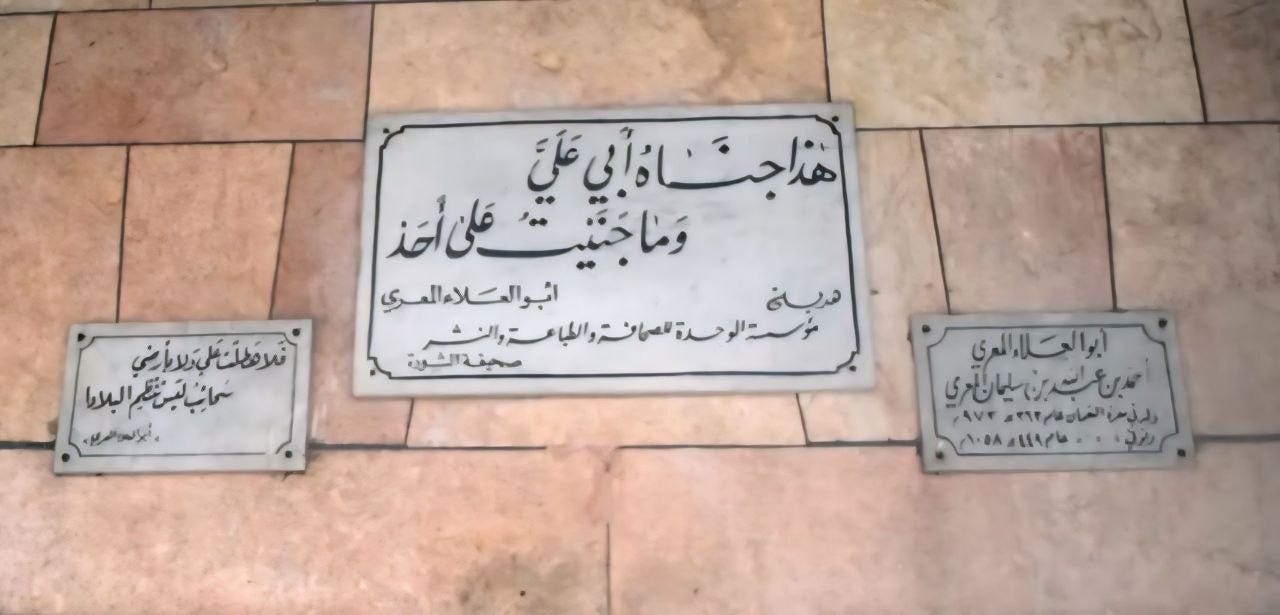 هٰذا جنَاهُ أَبي عَلَيَّ
وَمٰا جَنَيْتُ عَلىٰ أَحَد
ابو العلاء المعري
هدية
مؤسسة الوحدة للصحافة والطباعة والنشر
صحيفة الثورة
فَلا هَطَلَت عَلَيَّ وَلا بأرضي
سَحائبُ لَيسَ تَنْتَظِمُ البلادا
أبو العلاء المعري
أبوا لعلاء المعري
أحمَد بن عبد الله بن سليمان المعري
ولد في معرة النعمان عام ٣٦٣ هـ ٩٧٣ م
وتوفي . . . عام ٤٤٩ هـ ١٠٥٨ م